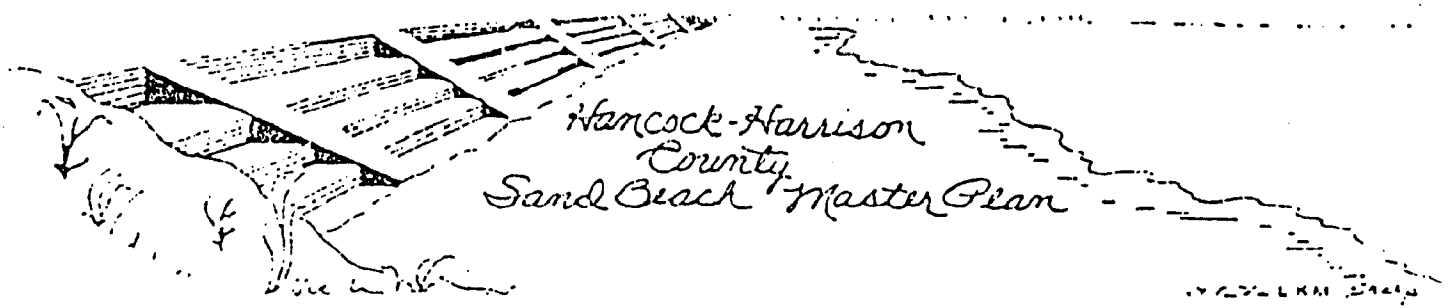 Hancock-Harrison
County
Sand Beach Master Plan